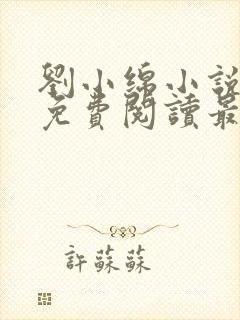 劉小綿小說
免費閱讀最
許蘇蘇